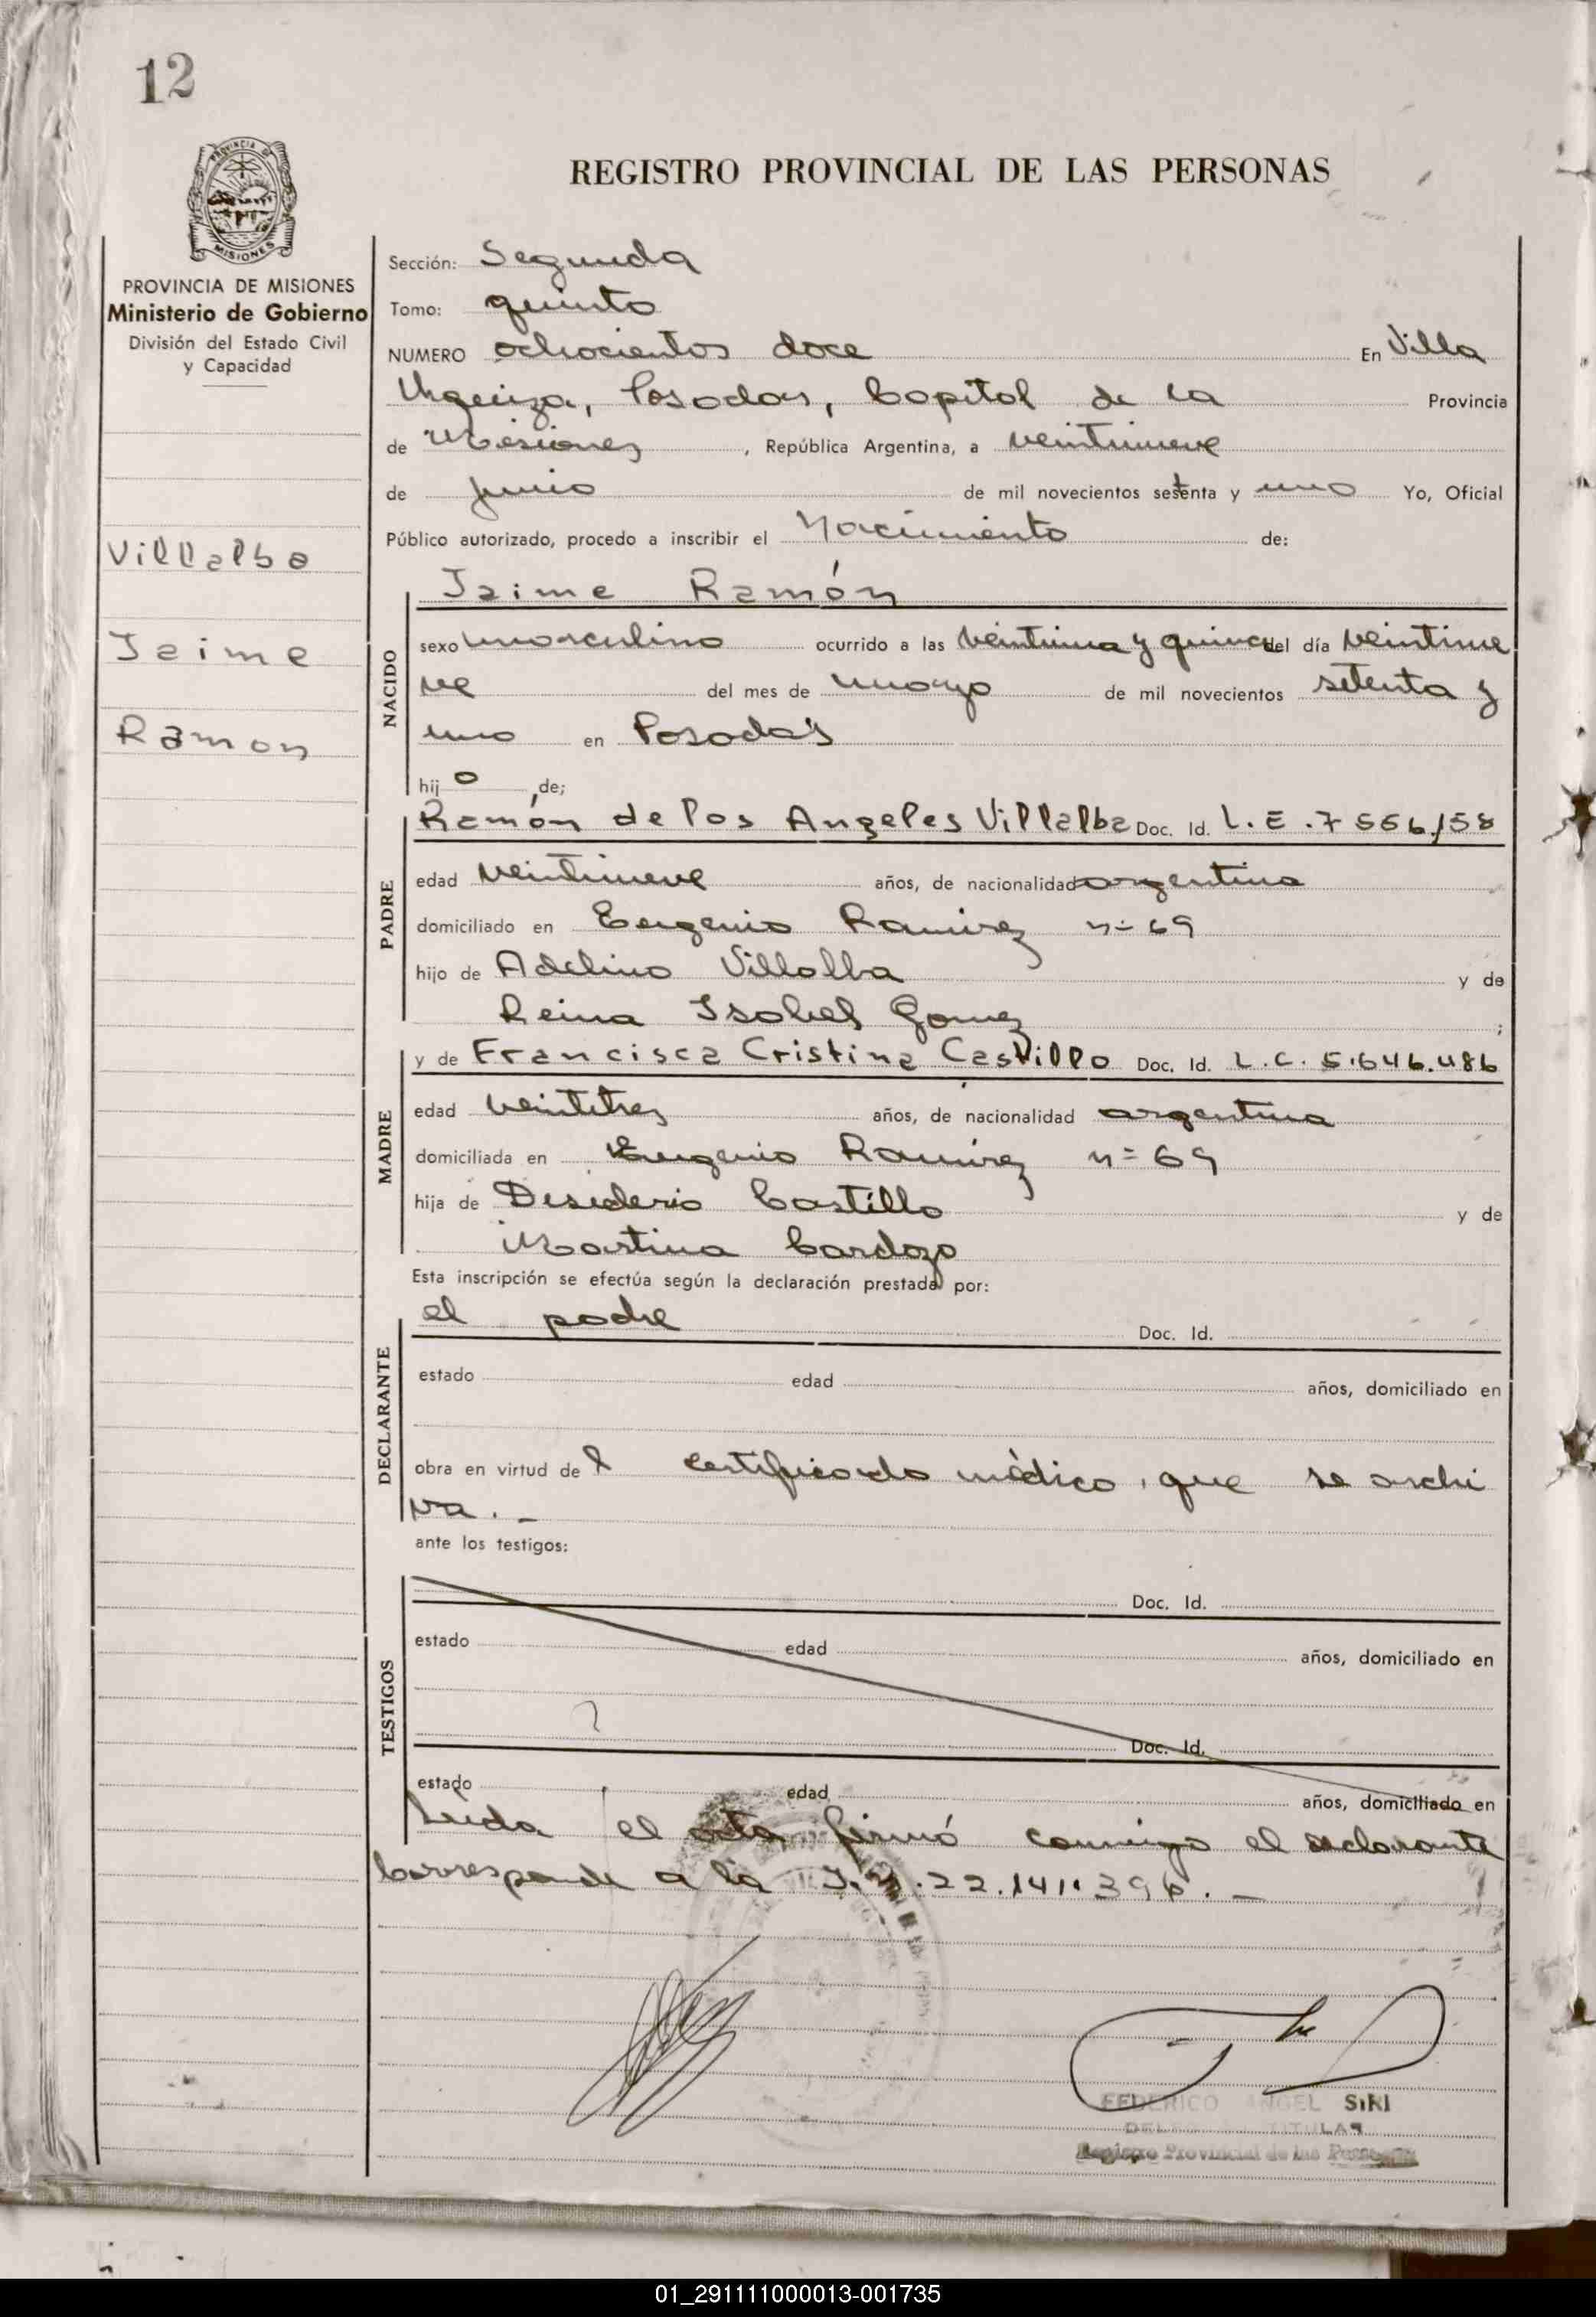 12
PROVINCIA DE
MISIONES
REGISTRO PROVINCIAL DE LAS PERSONAS
PROVINCIA DE MISIONES
Ministerio de Gobierno
División del Estado Civil
y Capacidad
Villalba
Jaime
Ramon
Sección: Segunda
Tomo: quinto
NUMERO ochocientos doce En Villa
Urquiza, Posadas, Capital de la Provincia
de Misiones, República Argentina, a veintinueve
de junio de mil novecientos setenta y uno Yo, Oficial
Público autorizado, procedo a inscribir el Nacimiento de:
Jaime Ramón
NACIDO
sexo masculino ocurrido a las veintiuna y quince del día veintinue
ve del mes de marzo de mil novecientos setenta y
uno en Posadas
hijo de;
PADRE
Ramón de los Angeles Villalba Doc. Id. L.E. 7556158
edad veintinueve años, de nacionalidad argentina
domiciliado en Eugenio Ramirez n= 69
hijo de Adelino Villalba y de
Reina Isabel Gomez ;
MADRE
y de Francisca Cristina Castillo Doc. Id. L.C. 5.646.486
edad veintitres años, de nacionalidad argentina
domiciliada en Eugenio Ramirez n= 69
hija de Desiderio Castillo y de
Martina Cardozo
Esta inscripción se efectúa según la declaración prestada por:
DECLARANTE
el padre Doc. Id.
estado edad años, domiciliado en
obra en virtud del certificado médico, que se archi
va. _
ante los testigos:
TESTIGOS
Doc. Id.
estado edad años, domiciliado en
Doc. Id.
estado edad años, domiciliado en
Leida el acta firmó conmigo el declarante
Corresponde a la 22.141.396. _
FEDERICO ANGEL SIRI
TITULAR
Registro Provincial de las Personas
01_291111000013-001735